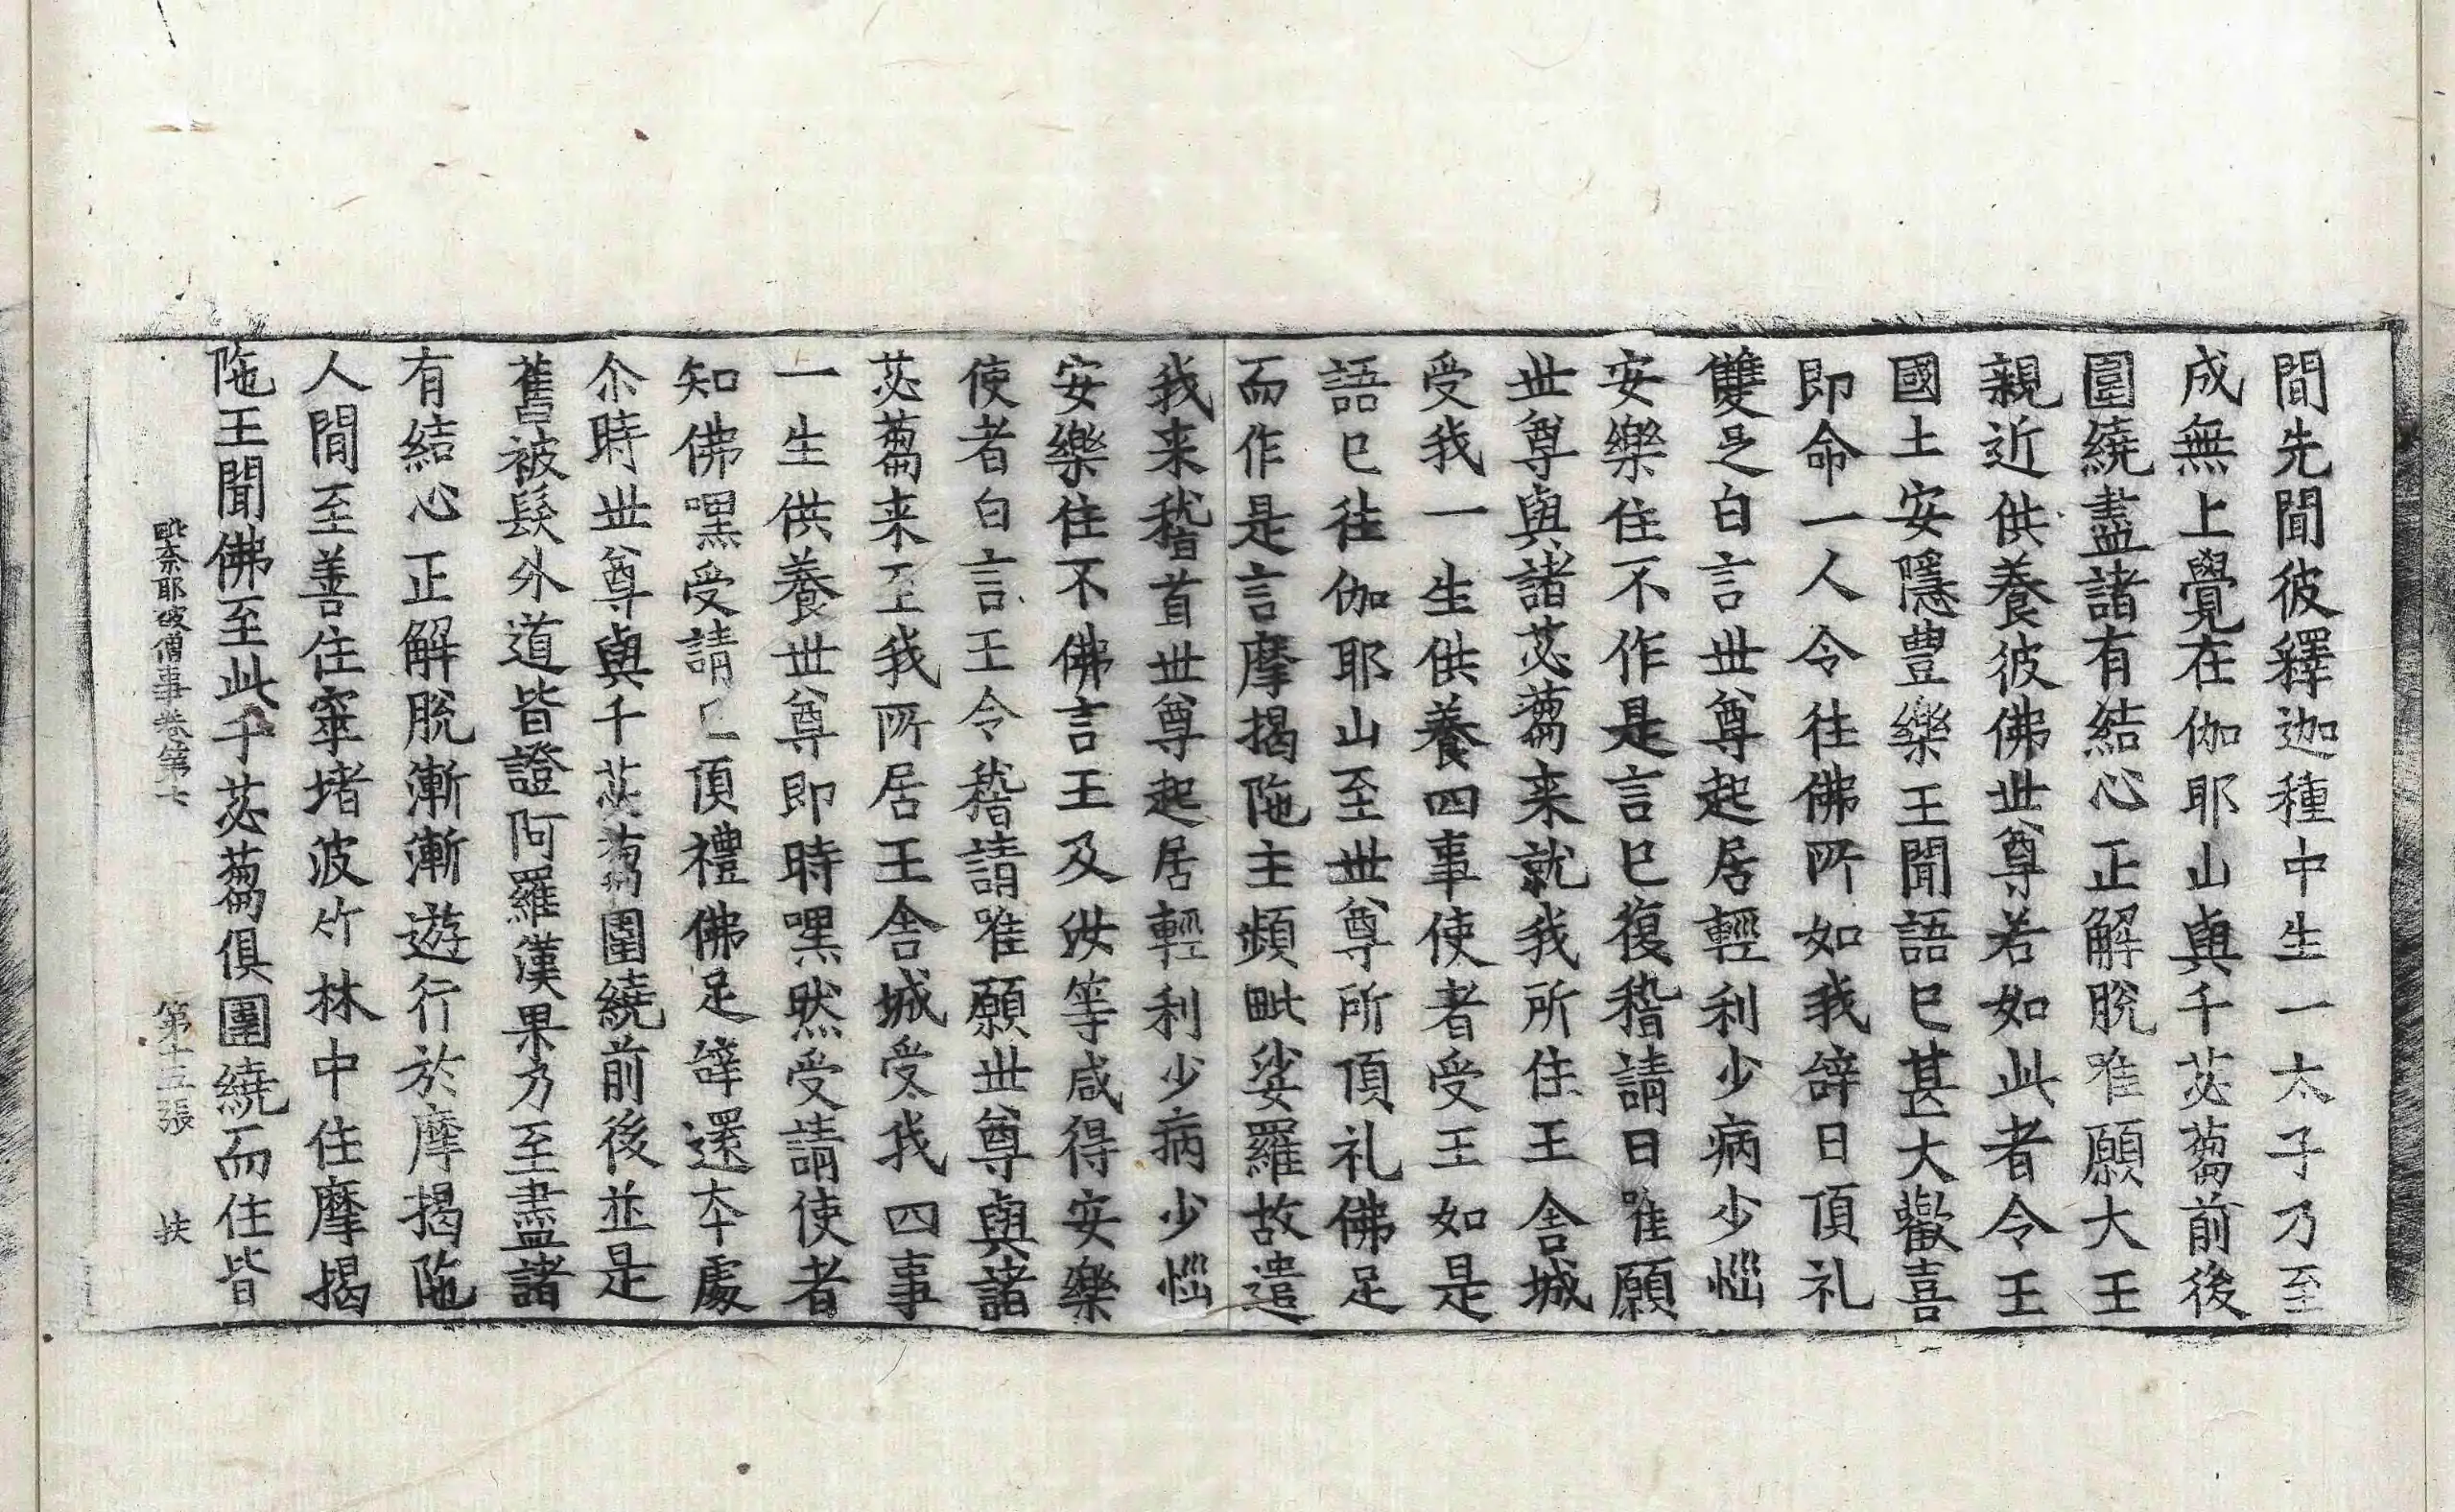 間先聞彼釋迦種中生一太子乃至
成無上覺在伽耶山與千苾芻前後
圍繞盡諸有結心正解脫唯願大王
親近供養彼佛世尊若如此者令王
國土安隱豊樂王聞語已甚大歡喜
即命一人令往佛所如我辝曰頂礼
雙足白言世尊起居輕利少病少惱
安樂住不作是言已復稽請曰唯願
世尊與諸苾芻来就我所住王舎城
受我一生供養四事使者受王如是
語已往伽耶山至世尊所頂礼佛足
而作是言摩揭陁主頻毗娑羅故遣
我来稽首世尊起居輕利少病少惱
安樂住不佛言王及汝等咸得安樂
使者白言王令稽請唯願世尊與諸
苾芻来至我所居王舎城受我四事
一生供養世尊即時嘿然受請使者
知佛嘿受請已頂禮佛足辝還本處
尒時世尊與千苾芻圍繞前後並是
舊被髮外道皆證阿羅漢果乃至盡諸
有結心正解脫漸漸遊行於摩揭陁
人間至善住窣堵波竹林中住摩揭
陁王聞佛至此千苾芻俱圍繞而住皆
毗奈耶破僧事卷第七 第十三張 扶